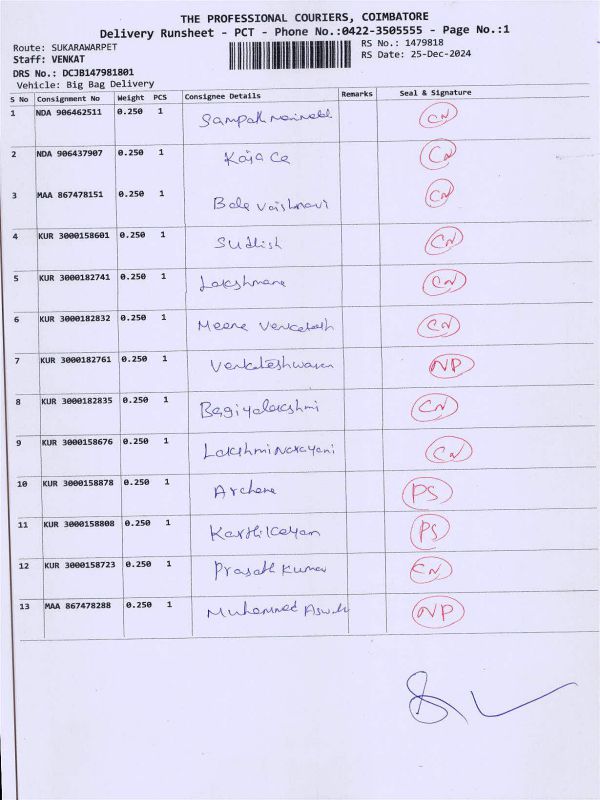 THE PROFESSIONAL COURIERS, COIMBATORE
Delivery Runsheet - PCT - Phone No.:0422-3505555 - Page No.:1
Route: SUKARAWARPET
RS No.: 1479818
Staff: VENKAT
RS Date: 25-Dec-2024
DRS No.: DCJB147981801
Vehicle: Big Bag Delivery
S No Consignment No Weight PCS Consignee Details Remarks Seal & Signature
1 NDA 906462511 0.250 1 Sampath CN
2 NDA 906437907 0.250 1 CN
3 MAA 867478151 0.250 1 Bala Vaishnavi CN
4 KUR 3000158601 0.250 1 Sudlish CN
5 KUR 3000182741 0.250 1 Lakshmana CN
6 KUR 3000182832 0.250 1 Meena Venkatesh CN
7 KUR 3000182761 0.250 1 Venkateshwaran NP
8 KUR 3000182835 0.250 1 Bagiyalakshmi CN
9 KUR 3000158676 0.250 1 Lakshmi Narayani CN
10 KUR 3000158878 0.250 1 Archana PS
11 KUR 3000158808 0.250 1 Karthikeyan PS
12 KUR 3000158723 0.250 1 Prasath Kumar CN
13 MAA 867478288 0.250 1 Muhammed NP